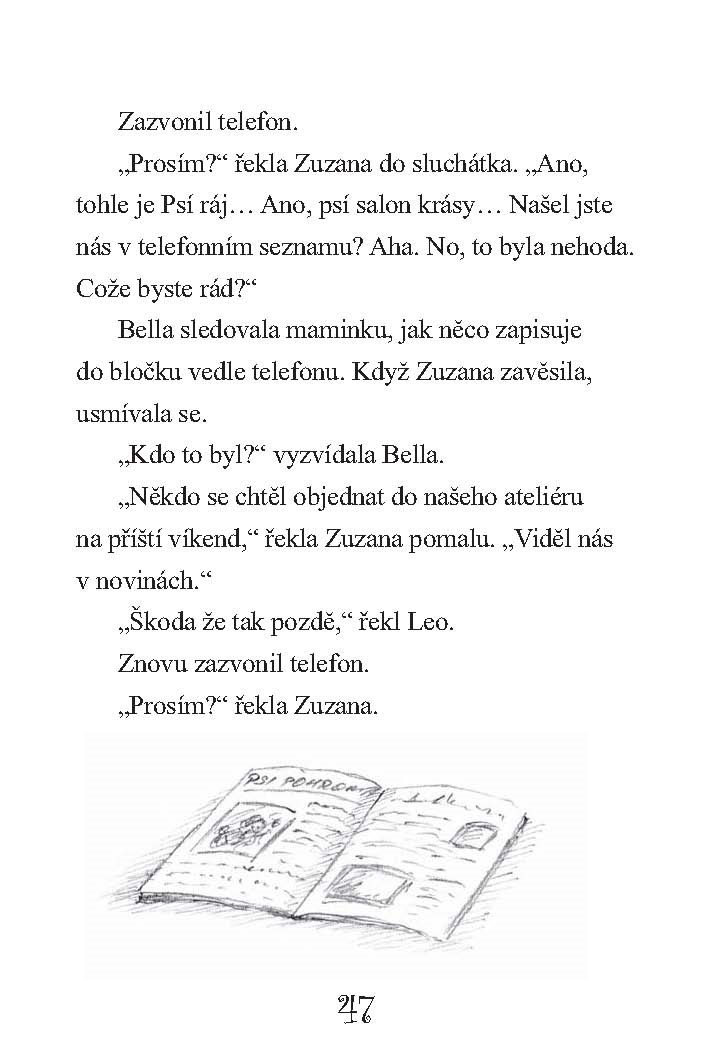 Zazvonil telefon.
„Prosím?“ řekla Zuzana do sluchátka. „Ano,
tohle je Psí ráj… Ano, psí salon krásy… Našel jste
nás v telefonním seznamu? Aha. No, to byla nehoda.
Cože byste rád?“
Bella sledovala maminku, jak něco zapisuje
do bločku vedle telefonu. Když Zuzana zavěsila,
usmívala se.
„Kdo to byl?“ vyzvídala Bella.
„Někdo se chtěl objednat do našeho ateliéru
na příští víkend,“ řekla Zuzana pomalu. „Viděl nás
v novinách.“
„Škoda že tak pozdě,“ řekl Leo.
Znovu zazvonil telefon.
„Prosím?“ řekla Zuzana.
PSÍ
47